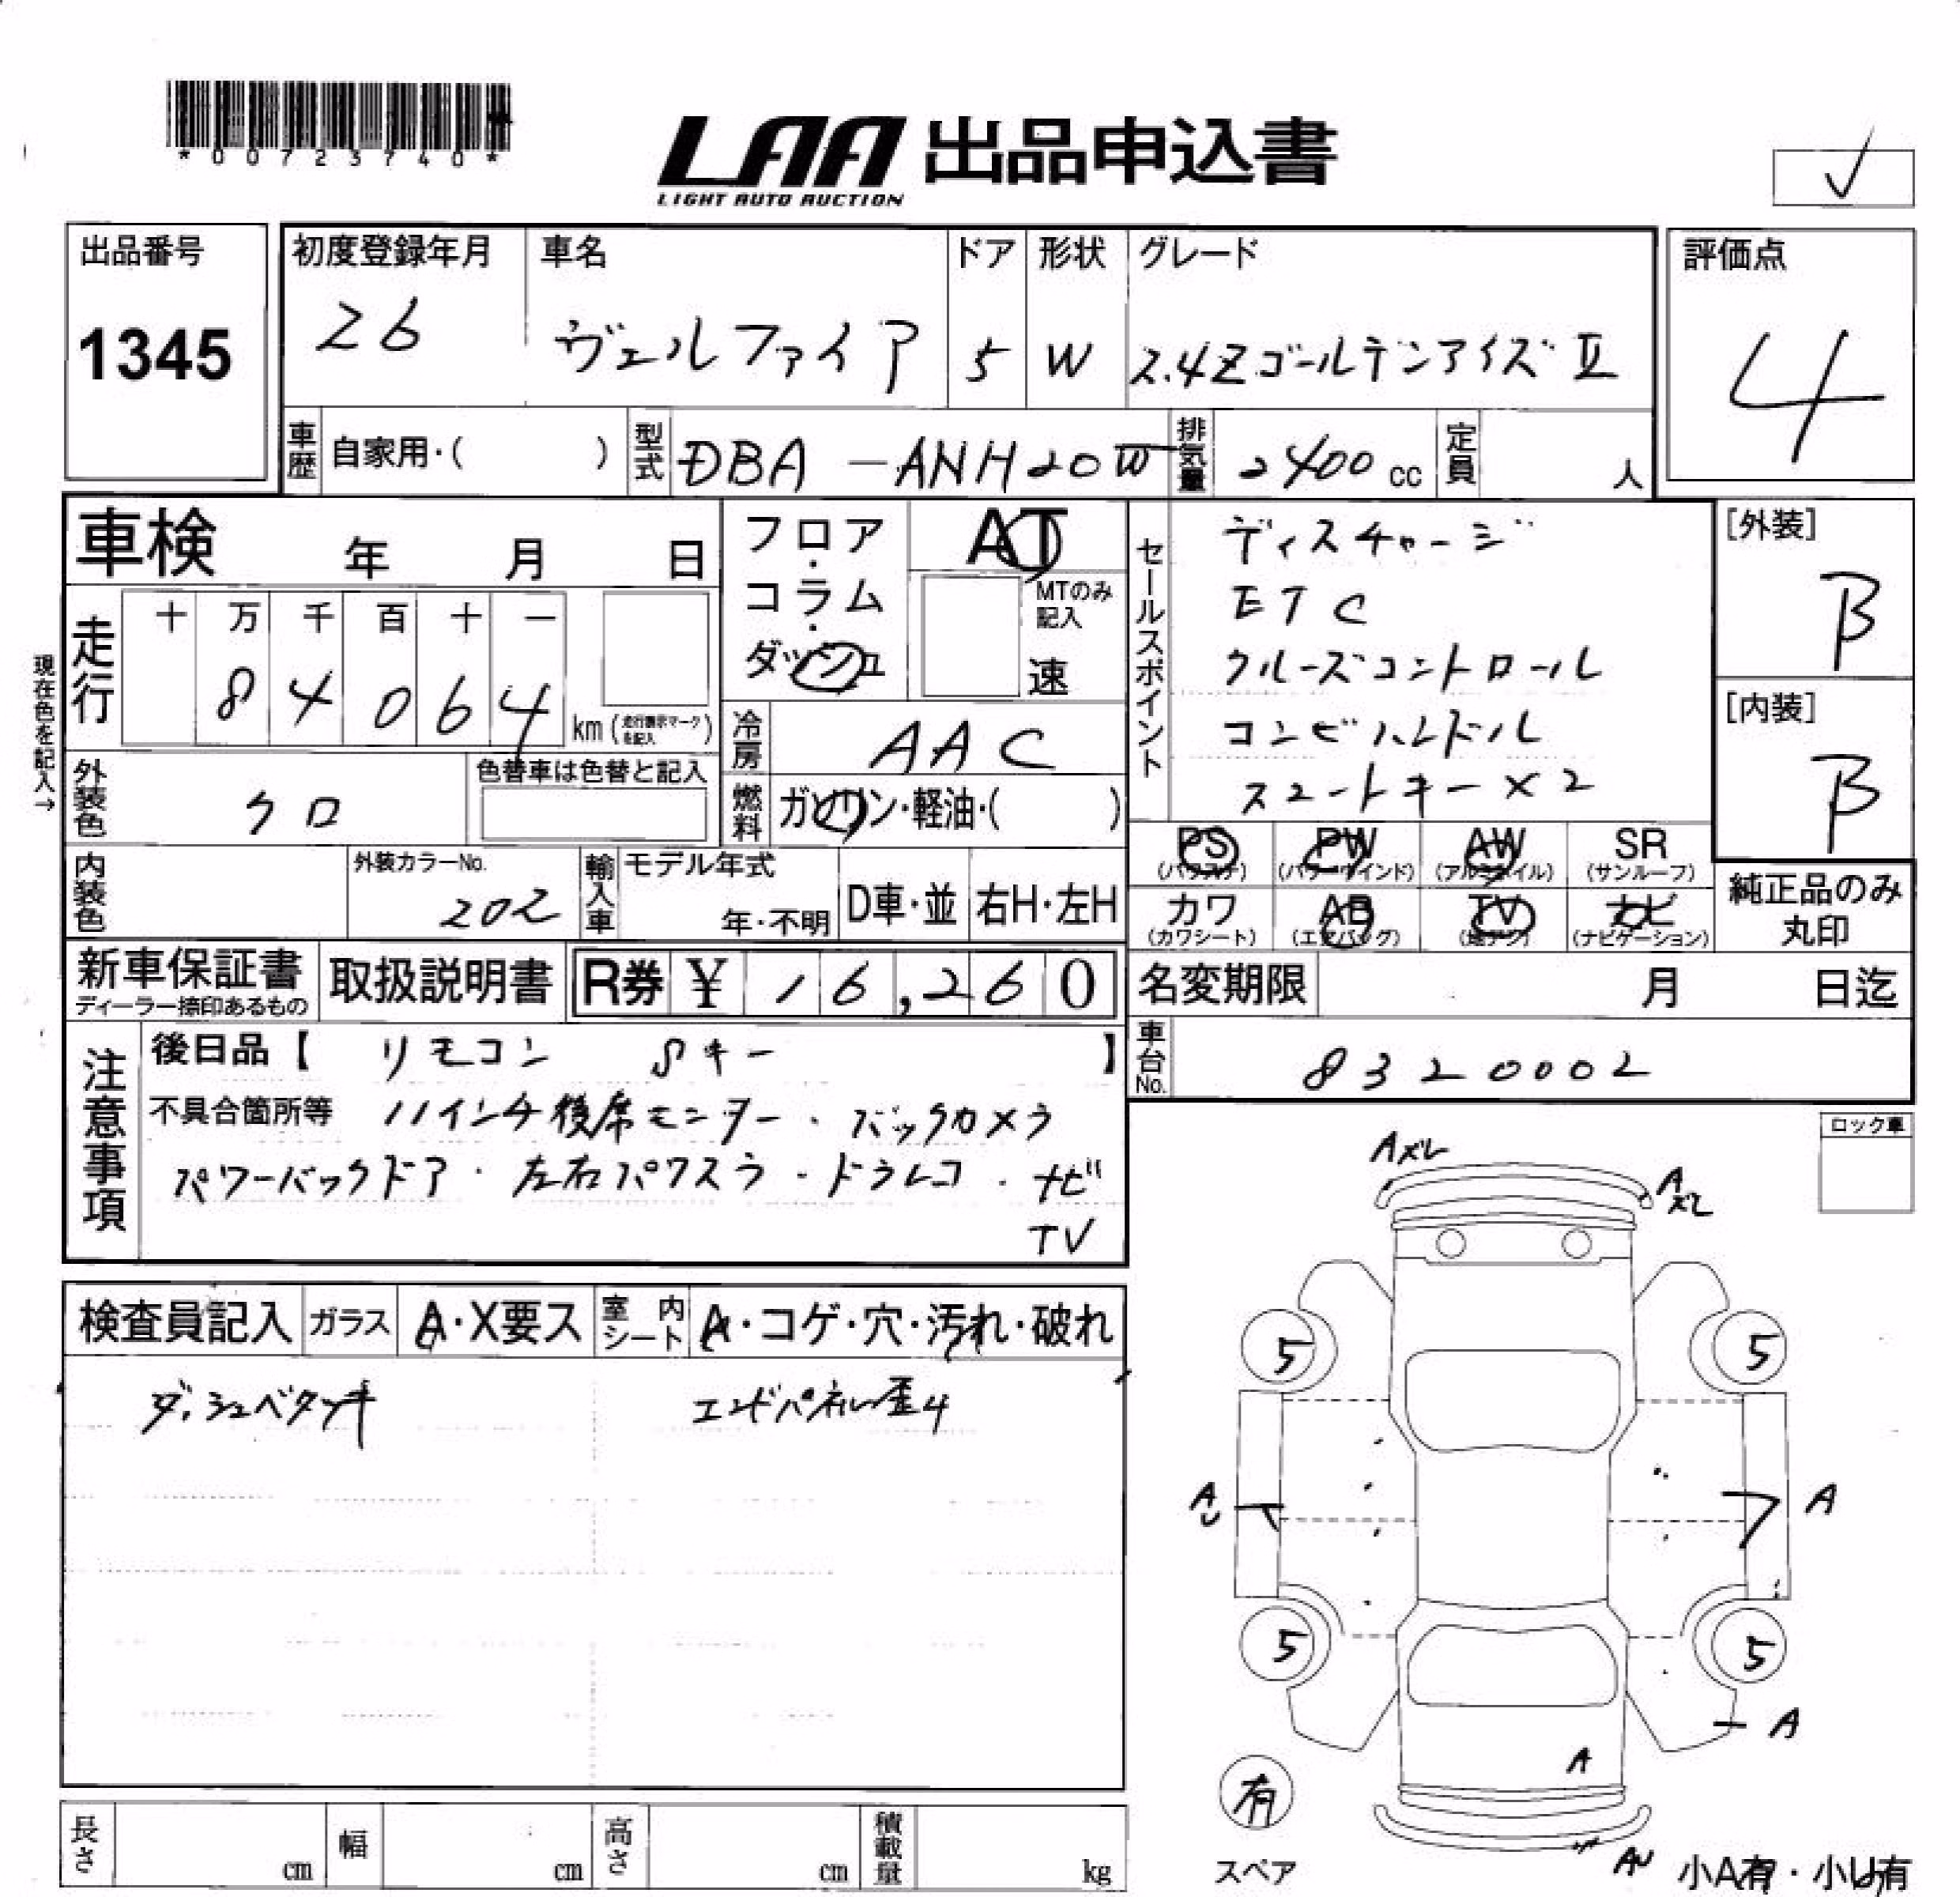 *00723740*
LAA 出品申込書
LIGHT AUTO AUCTION
✓
出品番号
1345
初度登録年月
26
車名
ヴェルファイア
ドア
5
形状
W
グレード
2.4Zゴールデンアイズ Ⅱ
評価点
4
車歴 自家用・( )
型式 DBA-ANH20W
排気量 2400 cc
定員 人
車検 年 月 日
走行 十 万 千 百 十 一
8 4 0 6 4
km (走行表示マークを記入)
現在色を記入→
外装色 クロ
色替車は色替と記入
内装色
外装カラーNo.
202
フロア・コラム・ダッシュ
AT
MTのみ記入
速
冷房 AAC
燃料 ガソリン・軽油・( )
輸入車
モデル年式
年・不明
D車・並
右H・左H
セールスポイント
ディスチャージ
ETC
クルーズコントロール
コンビハンドル
スマートキー×2
[外装]
B
[内装]
B
PS (パワステ)
PW (パワーウインド)
AW (アルミホイル)
SR (サンルーフ)
カワ (カワシート)
AB (エアバッグ)
TV (地デジ)
ナビ (ナビゲーション)
純正品のみ丸印
新車保証書
ディーラー捺印あるもの
取扱説明書
R券 ¥ 16,260
名変期限 月 日迄
車台No. 8320002
注意事項
後日品【 リモコン Sキー 】
不具合箇所等 11インチ後席モニター・バックカメラ
パワーバックドア・左右パワスラ・ドラレコ・ナビ
TV
ロック車
検査員記入
ガラス A・X要ス
室内シート A・コゲ・穴・汚れ・破れ
ダッシュベタツキ
エンドパネル歪4
Aズレ
Aズレ
5
5
AU
A
5
5
A
A
有
スペア
AU
小A有・小U有
長さ cm
幅 cm
高さ cm
積載量 kg